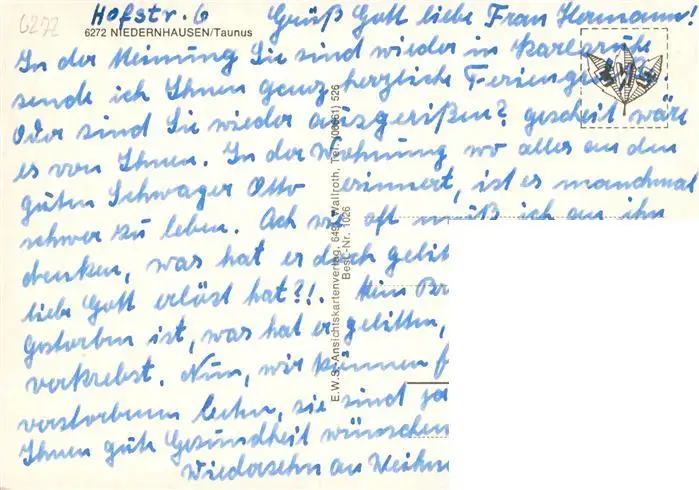 6272
Hofstr. 6
6272 NIEDERNHAUSEN/Taunus
Grüß Gott liebe Frau Hermann!
In der Meinung Sie sind wieder in Karlsruhe
sende ich Ihnen ganz herzliche
Oder sind Sie wieder ausgerißen? gescheit wäre
es von Ihnen. In der Wohnung wo alles an den
guten Schwager Otto erinnert, ist es manchmal
schwer zu leben. Ach wie oft muß ich an ihn
denken, was hat er doch gelit
liebe Gott erlöst hat?!. Mein Br
gestorben ist, was hat er gelitten,
verkrebst. Nun, wir können f
verstorbenen sie sind ja
Ihnen gute Gesundheit wünschen
Wiedersehn an Weihn
E.W.S.-Ansichtskartenverlag, 649 Wallroth, Tel. (06661) 526
Best-Nr. 1026